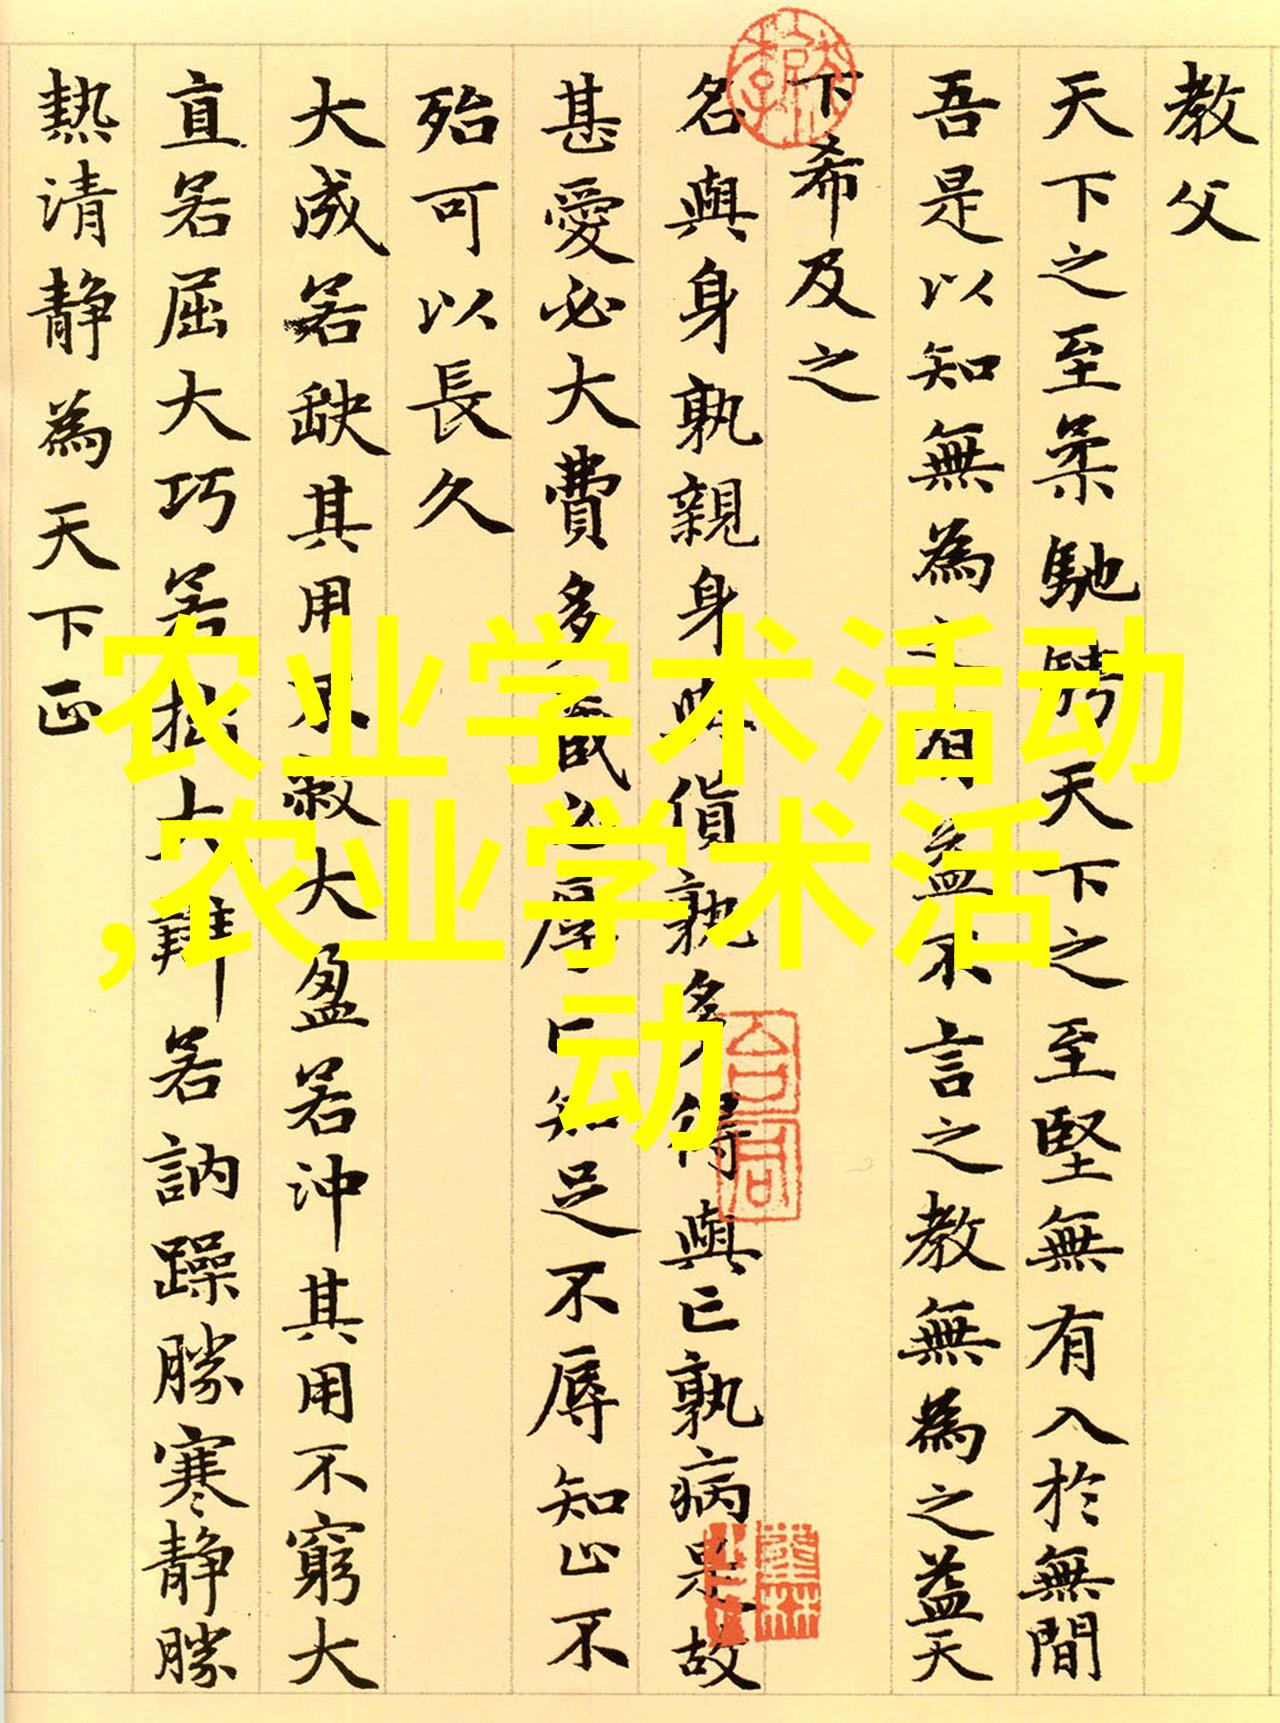 教父
天下之至柔馳騁天下之至堅無有入於無間
吾是以知無為之有益不言之教無為之益天
下希及之
名與身孰親身與貨孰多得與亡孰病是故
甚愛必大費多藏必厚亡知足不辱知止不
殆可以長久
大成若缺其用不敝大盈若沖其用不窮大
直若屈大巧若拙大辯若訥躁勝寒靜勝
熱清靜為天下正
农业学术活动
,农业学术活
动